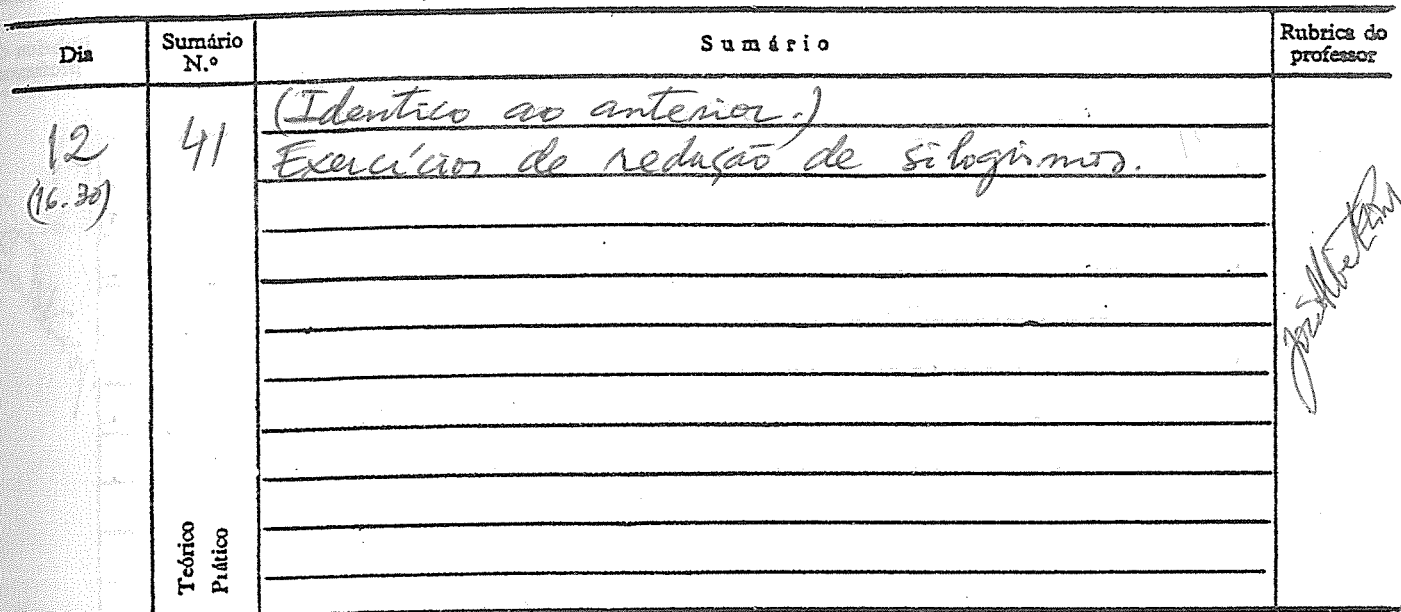 Dia
Sumário N.º
Sumário
Rubrica do professor
12
(16.30)
41
(Identico ao anterior.)
Exercícios de redução de silogismos.
Teórico
Prático